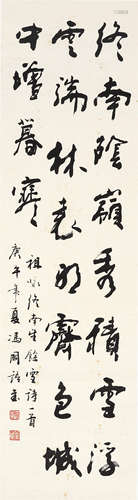 終南陰嶺秀積雪浮
雲端林表明霽色城
中增暮寒
祖咏終南望餘雪詩一首
庚午年夏馮國語書